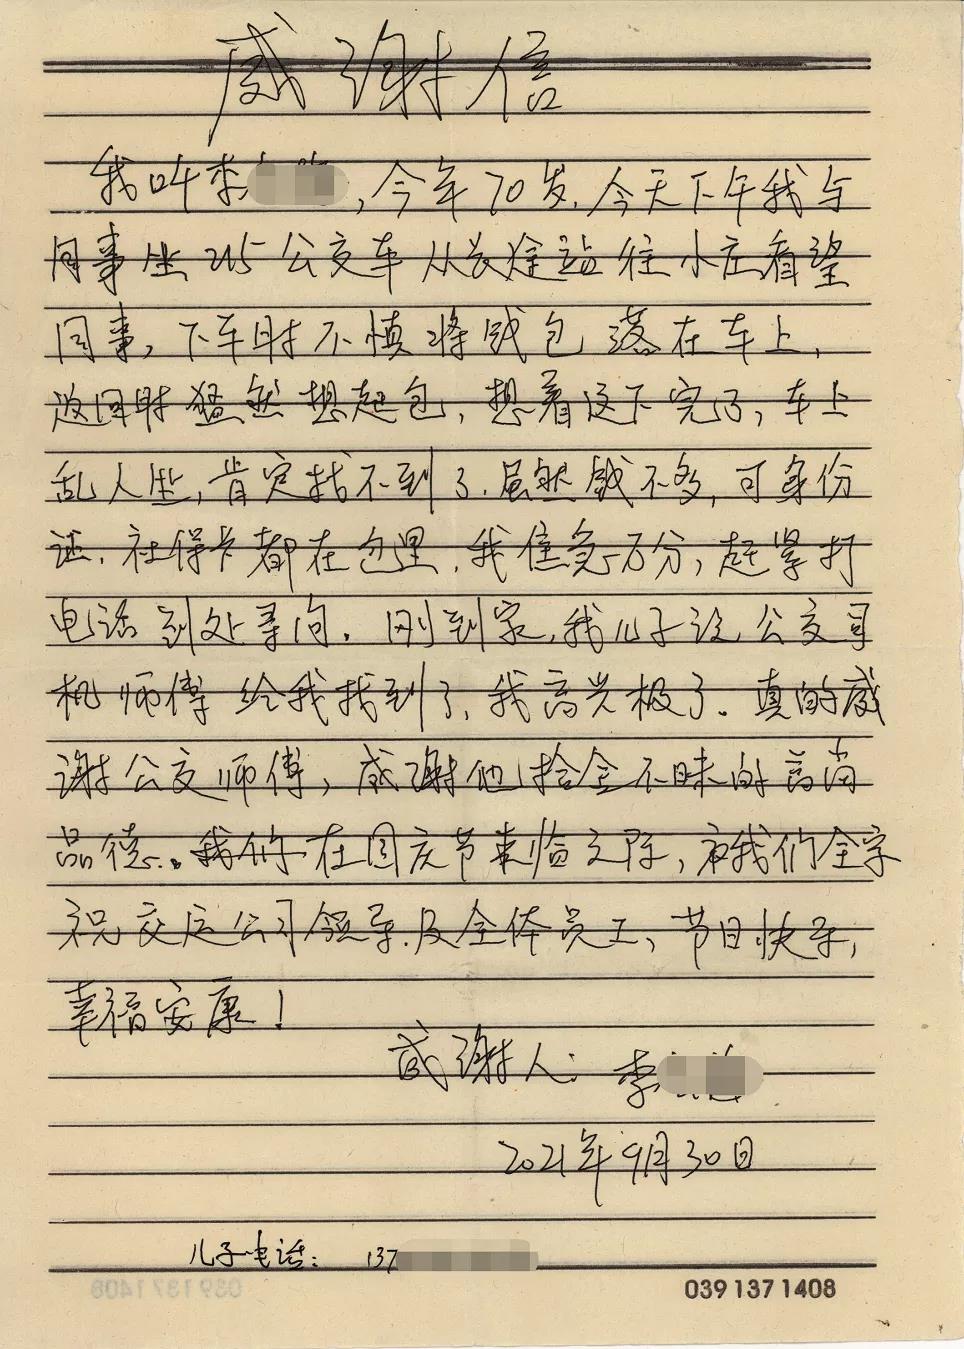 感谢信
我叫李,今年70岁.今天下午我与
同事坐215公交车从长途站往小庄看望
同事,下车时不慎将钱包落在车上,
返回时猛然想起包,想着这下完了,车上
乱人坐,肯定找不到了.虽然钱不多,可身份
证.社保卡都在包里,我焦急万分,赶紧打
电话到处寻问.刚到家,我儿子说公交司
机师傅给我找到了,我高兴极了.真的感
谢公交师傅,感谢他拾金不昧的高尚
品德..我们在国庆节来临之际,我们全家
祝交运公司领导.及全体员工、节日快乐,
幸福安康!
感谢人:李
2021年9月30日
儿子电话: 137
039 137 1408